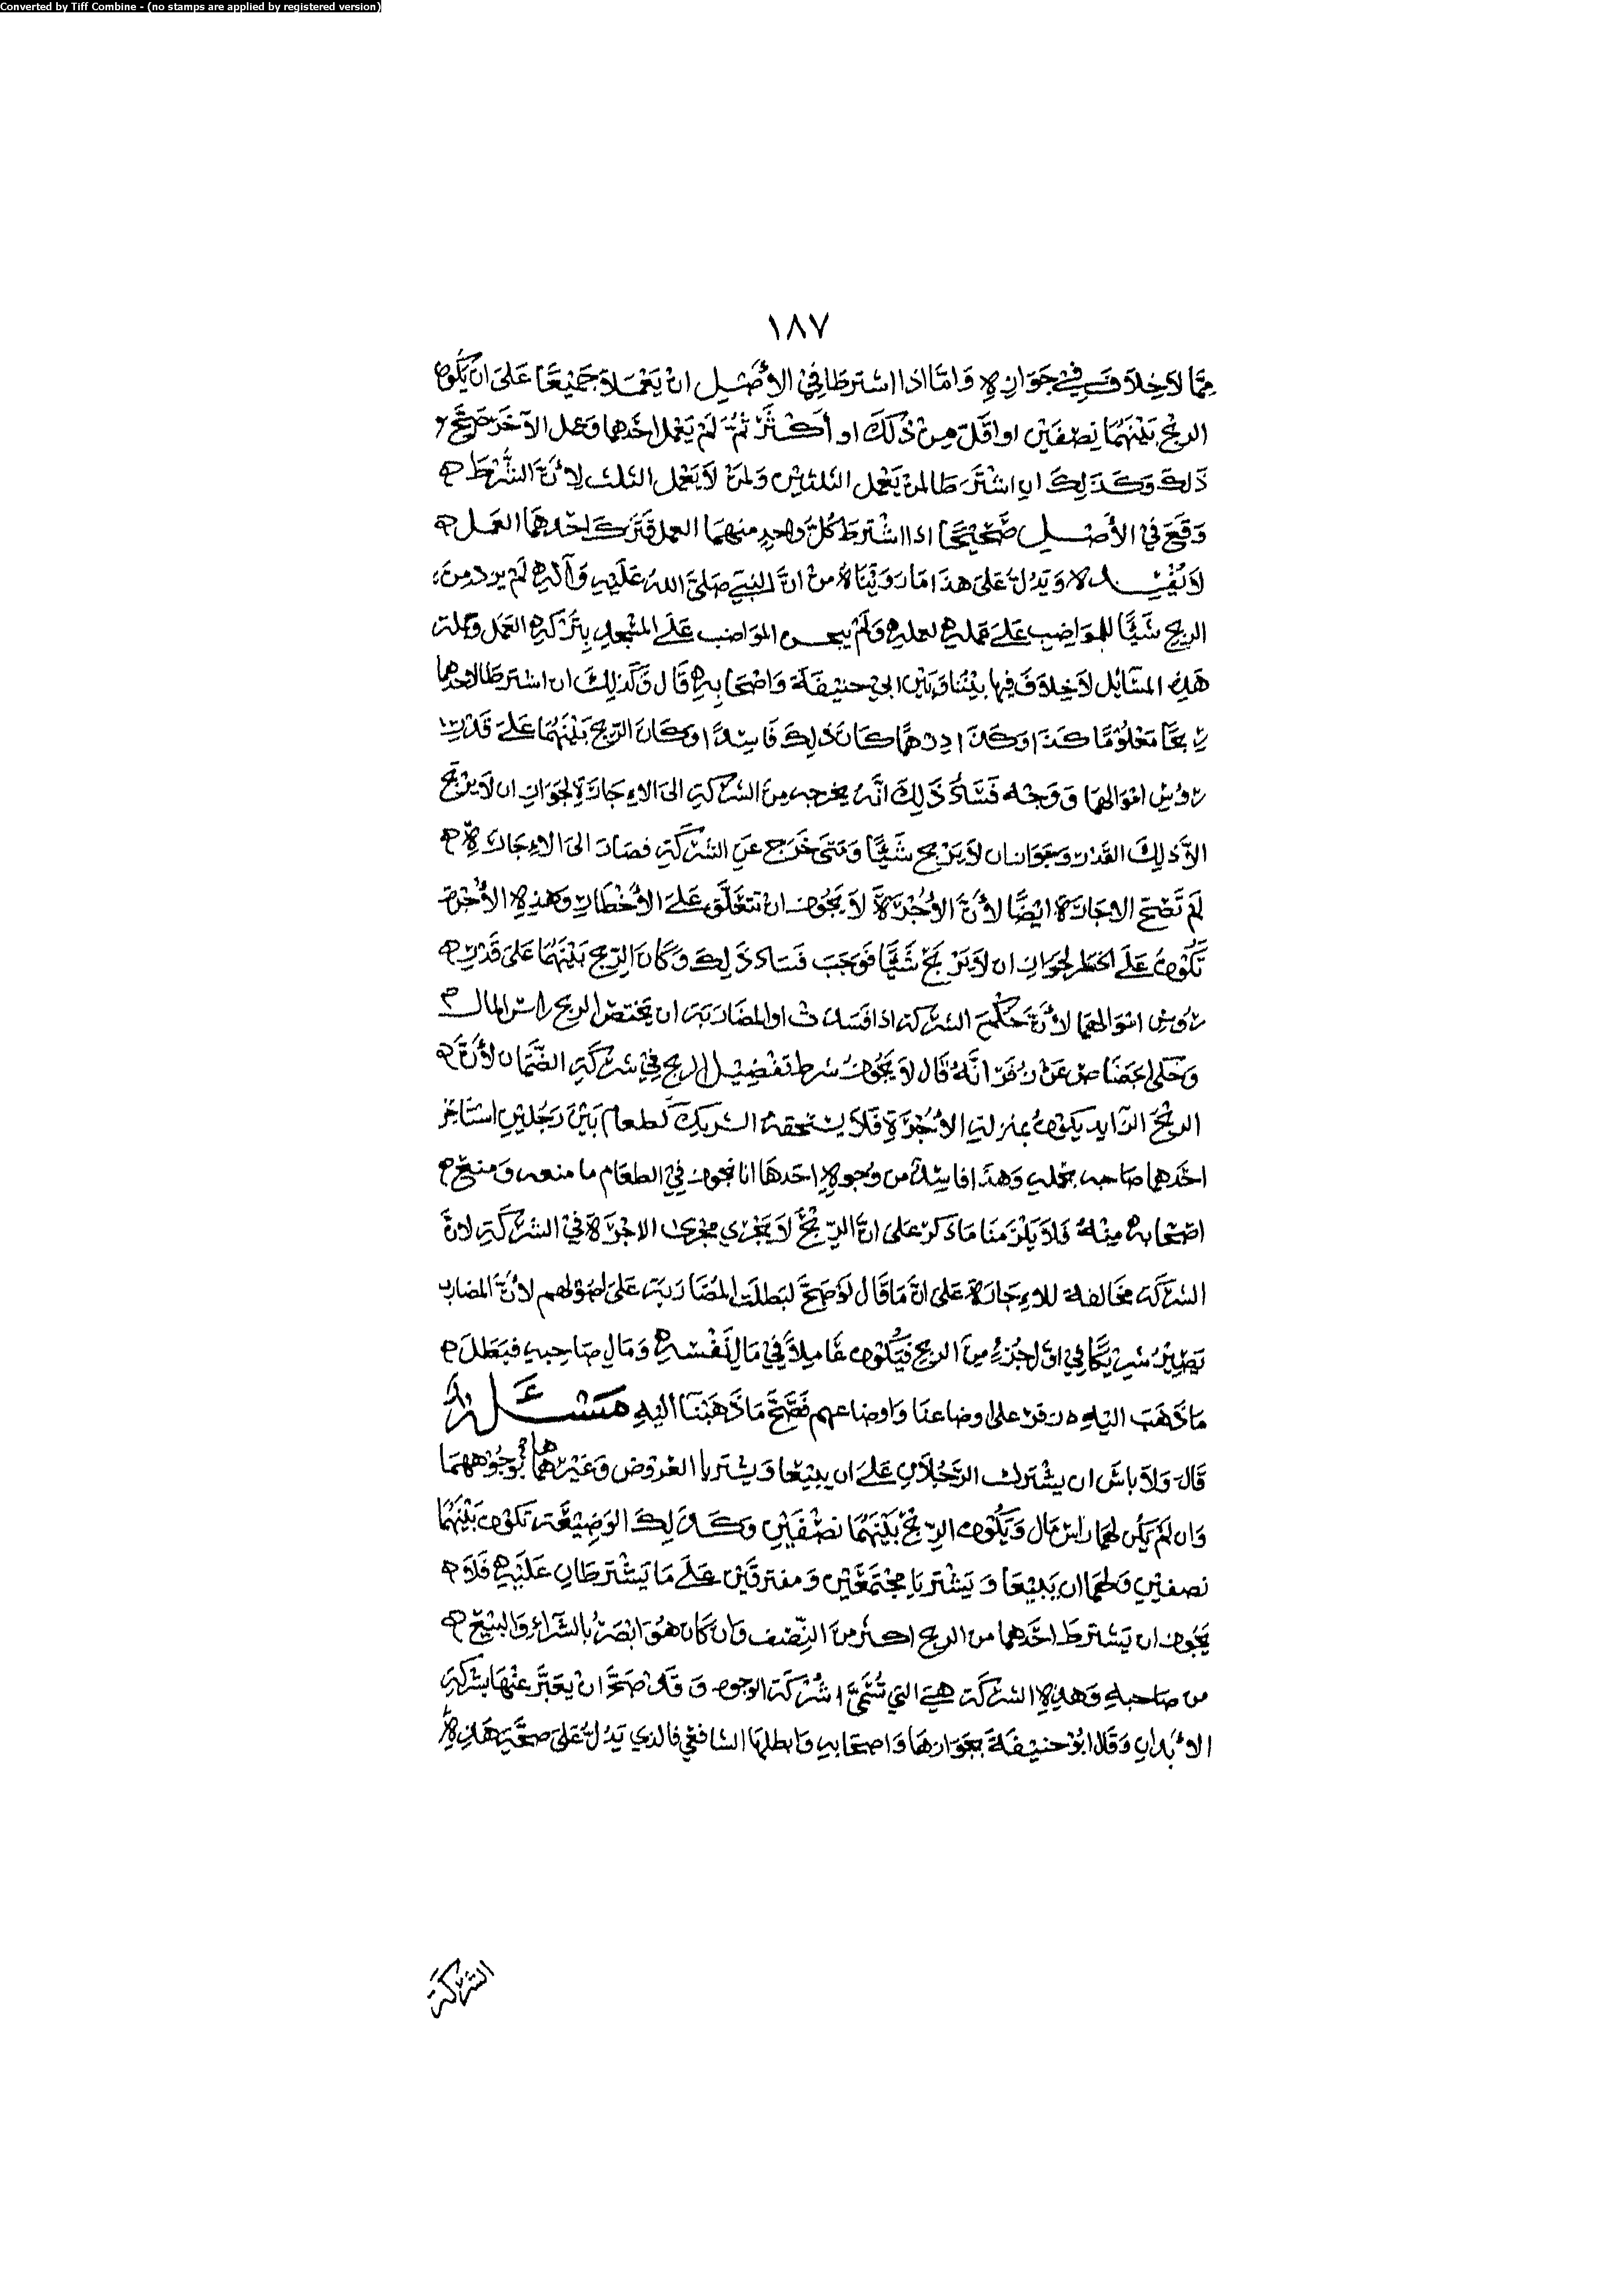 Converted by Tiff Combine - (no stamps are applied by registered version)
١٨٧
مِمَّا لاَ خِلاَفَ فِيْ جَوَازِهِ وَامَّا اذا اشترطَا فِيْ الأَصْلِ انْ يَعْمَلاَ جَمِيْعًا عَلىَ انْ يَكُونَ
الربْح بَيْنَهُمَا نِصْفَيْنِ او اقَلّ مِنْ ذَلكَ او أَكْثَرْ ثُمَّ لَمْ يَعْمل احَدهما وعمل الآخَر صَحَّ
ذَلكَ وَكَذَلِكَ ان اشْتَرَطا لمن يَعْمل الثلثيْن وَلمن لاَ يَعْمل الثلث لأَنَّ الشَّرْطَ
وَقَعَ فيْ الأَصْلِ صَحِيْحًا اذا اشْترطَ كُلُّ واحِدٍ منهمَا العمل فَتَرَكَ احَدهمَا العَمل
لاَ يُفْسِده وَيَدُلُّ عَلى هذا مَا رَوَيْنَاهُ منْ انَّ النبيَّ صَلىَّ اللهُ عَلَيْهِ وَآلهِ لَمْ يردّ مِنَ
الربح شَيًّا للمواضِب عَلىَ عَمَلهِ لعملهِ وَلَمْ المواضب عَلىَ بِتَرْكهِ العَمل وجملة
هَذِهِ المسَائل لاَ خِلاَفَ فِيها بَيْنَنَا وَبَيْن ابيْ حنيْفَةَ وَاصْحَابِهِ قَال وَكَذلِكَ ان اشترطَا لاحدهما
ربحًا مَعْلوْمًا كَذَا وَكَذَا درْهمًا كانَ ذَلِكَ فَاسِدًا وَكَانَ الرّبح بَيْنَهُمَا عَلىَ قَدْر
رؤسِ امْوَالهمَا وَوَجْه فَسَادُ ذَلِكَ انَّهُ يخرجه مِنَ الشرْكَةِ الىَ الاءِجَارَةِ لجوَازِ ان لاَ يَرْبَح
الاَّ ذلكَ القَدْر وبجوَاز ان لاَ يَرْبح شَيًّا وَمَتىَ خَرَج عَنِ الشرْكَةِ فصَارَ الىَ الاءِجَارَةِ
لَمْ تَصحّ الاجَارَة ايْضًا لأَنَّ الأُجْرَةَ لاَ يَجُوز ان تتعَلَّق عَلىَ الأَخْطَارِ وَهَذِهِ الأُجْرَة
تَكُونُ عَلىَ الخطر لجوازِ ان لاَ يَرْبحَ شَيًّا فَوَجَبَ فسَاد ذَلِكَ وَكَانَ الرِّبح بَيْنَهُمَا عَلىَ قَدْرِ
رؤسِ امْوَالهمَا لأَنَّ حكْمَ الشرْكة اذا فسَدَتْ او المضَارَبَة ان يَخْتصّ الربح راس المال
وَحَكى الجصَّاص عَنْ زُفَر انَّهُ قَال لاَ يَجُوزُ شرط تفْضِيْل الربح فِيْ شرْكَةِ الضَّمَان لأَنَّ
الربْحَ الزَّايد يكوْنُ بمنزلةِ الأُجْرَةِ فَلاَ يسْتحقهُ الشريك كَطعام بَيْنَ رَجُليْنِ استَأجَرَ
احَدهما صَاحبه بحمله وَهذَا فاسِدٌ من وُجوهٍ احَدهَا انا نجوّز فِيْ الطعَام ما منعه وَمنع
اصْحَابه مِنْهُ فَلاَ يَلْزمنَا مَا ذكر عَلى انَّ الرِّبْحَ لاَ يَجْرِي مجْرى الاجْرَة فيْ الشرْكَةِ لانَّ
الشرْكة مخَالفة للاءِجَارَة عَلى انّ مَا قَال لَوْ صَحَّ لبَطلت المُضَارَبَة عَلىَ اصوْلهم لأَنَّ المضارب
يَصِيْرُ شرِيْكًا فِي اوّل جُزْءٍ منَ الربح فَيَكُوْن عَامِلاً فِيْ مَالِ نَفْسهِ وَمَالِ صَاحِبهِ فبَطَلَ
مَا ذَهَبَ اليْهِ زفَر على اوضاعنا وَاوضاعهم فَصَحَّ مَا ذَهَبْنَا اليْهِ مَسْئَلَة
قَال وَلاَ باسَ ان يشْترك الرَّجُلاَنِ عَلىَ ان يبيْعَا وَيشتريا العُرُوض وَغَيْرهَا بوجُوْههمَا
وَان لَمْ يَكُن لهمَا راسْ مَال وَيَكُوْن الرِّبْحُ بَيْنَهُمَا نِصْفَيْنِ وَكَذَلِكَ الوَضِيْعَة تكوْن بَيْنَهُمَا
نصفيْنِ وَلهمَا ان يَبيْعَا وَيَشْتريَا مجْتَمَعَيْن وَمفترقَيْن عَلىَ مَا يَشْترطَانِ عَلَيْهِ فَلاَ
يَجُوز ان يَشْترطَ احَدهما من الربح اكثر منَ النِّصْف وَان كَانَ هوَ ابْصَرُ بالشّرَاءِ وَالبَيْع
من صَاحبهِ وَهذِهِ الشرْكَة هيَ التي تُسَمَّى شرْكَة الوجوه وَقَدْ صَحَّ انْ يعَبَّر عَنْهَا بشرْكَةِ
الأَبْدَانِ وَقَال ابُوْ حنيْفَةَ بجوَازهَا وَاصحَابه وَابطلهَا الشافعيْ فالذي يَدُلُّ عَلىَ صحَّة هَذِهِ
الشرْكَة